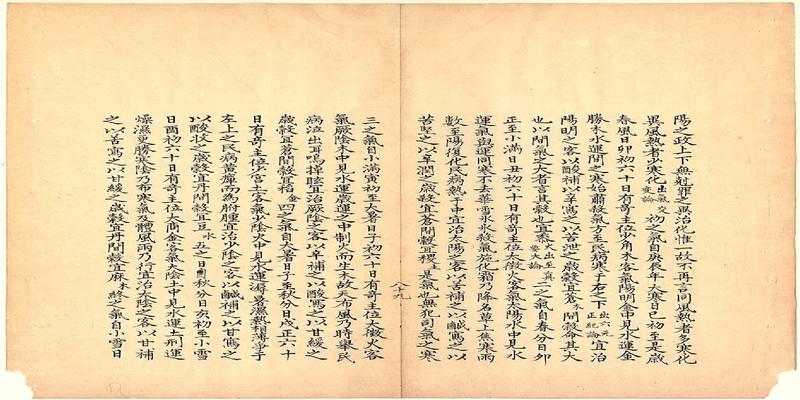 陽之政上下無射罪之異治化惟一故不再言同風熱者多寒化
異風熱者少寒化出氣交變論初之氣自庚辰年大寒日巳初至是歲
春風日卯初六十日有奇主位少角木客氣陽明金中見水運金
勝木水運間之寒始肅殺氣方至民病寒于右之下出六元正紀論宜治
陽明之客以酸補以辛瀉之以苦泄之歲穀宜蒼間穀命其大
也以間氣之大者言其穀也宜黍二之氣自春分日卯
正至小滿日丑初六十日有奇主位太徵火客氣太陽水中見水
運氣與運同寒不去華雪水氷殺氣施化霜乃降大草上焦寒雨
數至陽復化民病熱于中宜治太陽之客以苦補之以鹹瀉之以
苦堅之以辛潤之歲穀宜蒼間穀宜稷土是氣也無犯司氣之寒
八十九
三之氣自小滿寅初至大暑日子初六十日有奇主位太徵火客
氣厥陰木中見水運歲運之中制火而生木故天布風乃時舉民
病泣出耳鳴掉眩宜治厥陰之客以辛補之以酸瀉之以甘緩之
歲穀宜蒼間穀宜稻金四之氣自大暑日子至秋分日戌正六十
日有奇主位少宮土客氣少陰火中見水運溽暑濕熱相薄爭于
左上之民病黃癉而為胕腫宜治少陰之客以鹹補之以甘瀉之
以酸收之歲穀宜丹間穀宜豆水五之日自秋分日亥初至小雪
日酉初六十日有奇主位太商金客氣太陰土中見水運土刑運
燥濕更勝寒陰乃布寒氣及體風雨乃行宜治太陰之客以甘補
之以苦瀉之以甘緩之歲穀宜丹間穀宜麻木終之氣自小雪日